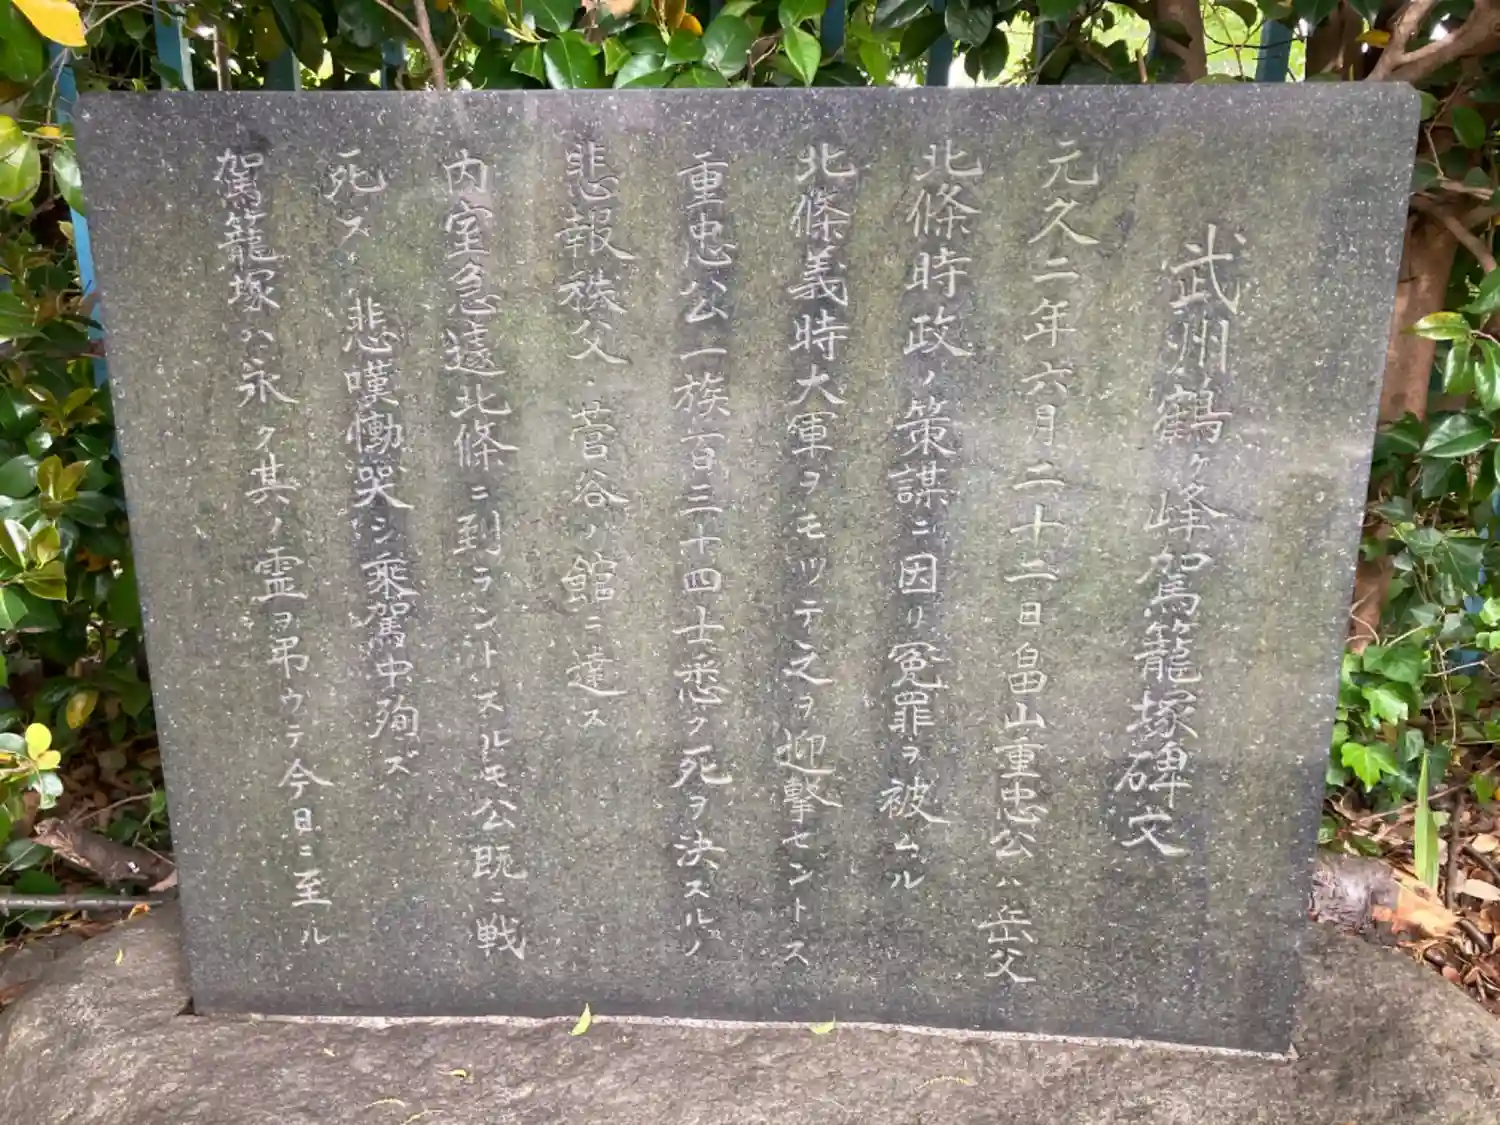 武州鶴ヶ峰駕籠塚碑文
元久二年六月二十二日畠山重忠公ハ岳父
北條時政ノ策謀ニ因リ冤罪ヲ被ムル
北條義時大軍ヲモッテ之ヲ迎撃セントス
重忠公一族百三十四士悉ク死ヲ決スルノ
悲報秩父・菅谷ノ館ニ達ス
内室急遠北條ニ到ラントスルモ公既ニ戦
死ス 悲嘆慟哭シ乘駕中殉ズ
駕籠塚ハ永ク其ノ霊ヲ弔ウテ今日ニ至ル